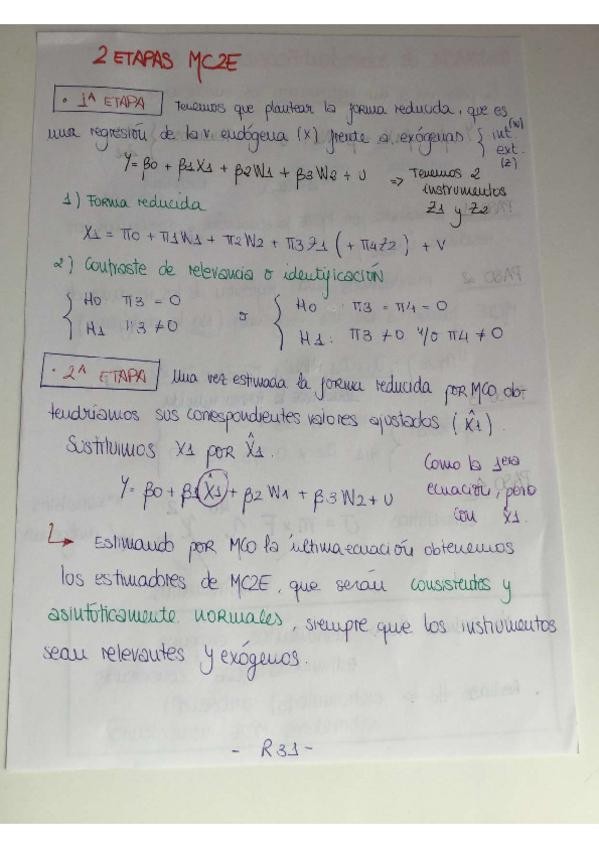 2 ETAPAS MC2E
• 1ª ETAPA Tenemos que plantear la forma reducida, que es
una regresión de la v. endógena (X) frente a exógenas { int (W)
ext. (Z)
Y = β0 + β1X1 + β2W1 + β3W2 + U => Tenemos 2
instrumentos
Z1 y Z2
1) Forma reducida
X1 = π0 + π1W1 + π2W2 + π3Z1 (+ π4Z2) + V
2) Contraste de relevancia o identificación
{ H0 π3 = 0 o { H0 : π3 = π4 = 0
H1 π3 ≠ 0 H1 : π3 ≠ 0 y/o π4 ≠ 0
• 2ª ETAPA Una vez estimada la forma reducida por MCO, ob-
tendríamos sus correspondientes valores ajustados (X̂1).
Sustituimos X1 por X̂1.
Y = β0 + β1X̂1 + β2W1 + β3W2 + U
Como la 1era
ecuación, pero
con X̂1.
↳ Estimando por MCO la última ecuación obtenemos
los estimadores de MC2E, que serán consistentes y
asintóticamente normales, siempre que los instrumentos
sean relevantes y exógenos.
- R31 -